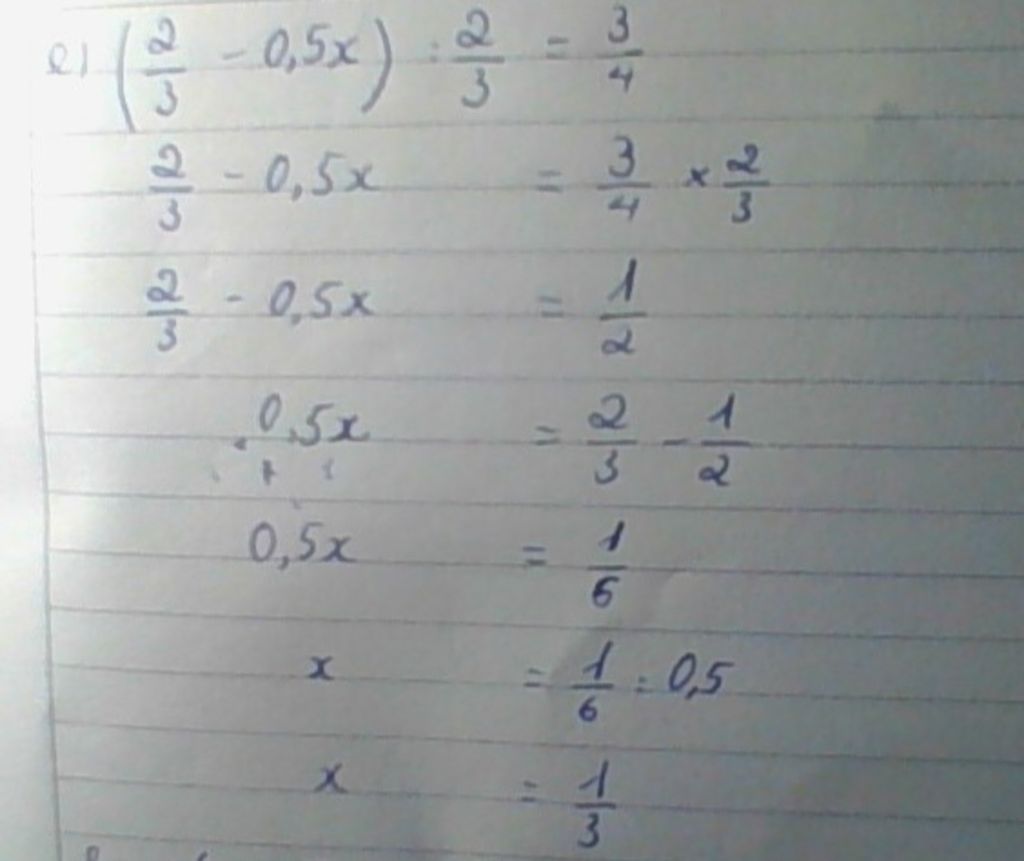 e) (2/3 - 0,5x) : 2/3 = 3/4
2/3 - 0,5x = 3/4 × 2/3
2/3 - 0,5x = 1/2
0,5x = 2/3 - 1/2
0,5x = 1/6
x = 1/6 : 0,5
x = 1/3